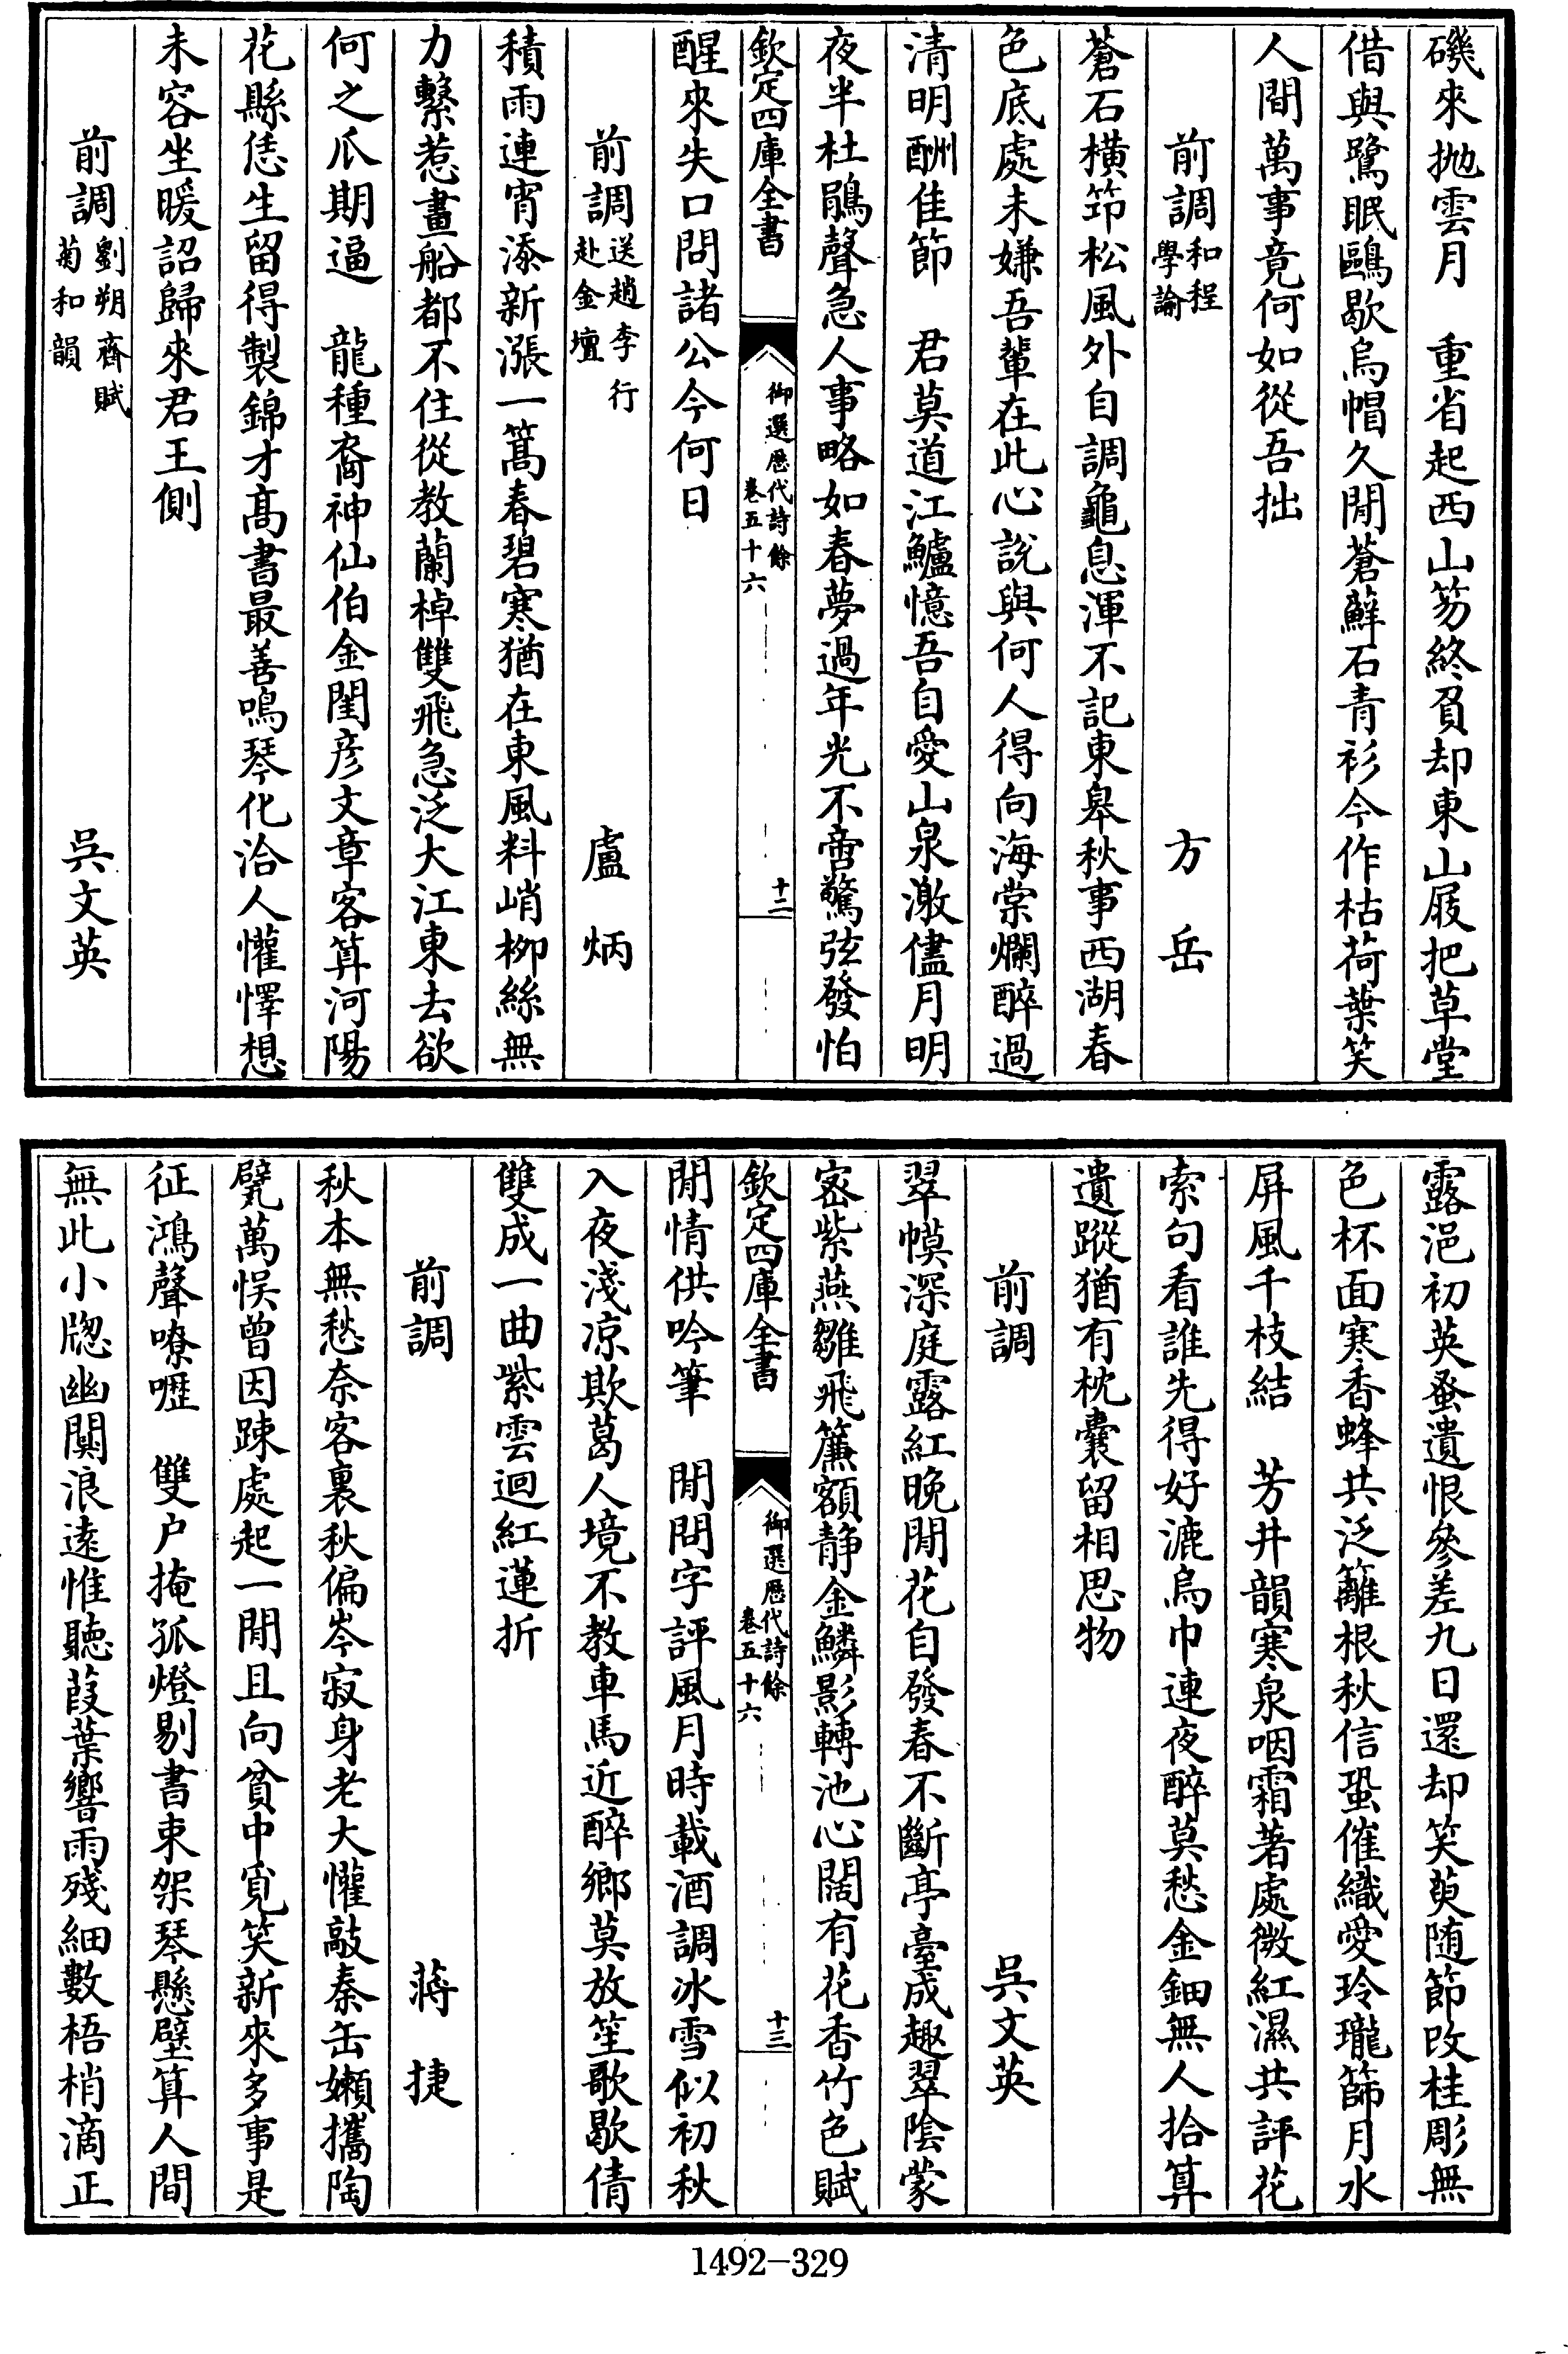 磯來抛雲月　重省起西山笏終負却東山屐把草堂
借與鷺眠鷗歇烏帽久閒蒼蘚石青衫今作枯荷葉笑
人間萬事竟何如從吾拙
前調和程學諭　方岳
蒼石横筇松風外自調龜息渾不記東皋秋事西湖春
色底處未嫌吾輩在此心説與何人得向海棠爛醉過
清明酬佳節　君莫道江鱸憶吾自愛山泉激儘月明
夜半杜鵑聲急人事略如春夢過年光不啻驚弦發怕
欽定四庫全書　御選歷代詩餘卷五十六　十二
醒來失口問諸公今何日
前調送趙李行赴金壇　盧炳
積雨連宵添新漲一篙春碧寒猶在東風料峭柳絲無
力繫惹畫船都不住從教蘭棹雙飛急泛大江東去欲
何之瓜期逼　龍種裔神仙伯金閨彦文章客算河陽
花縣恁生留得製錦才髙書最善鳴琴化洽人懽懌想
未容坐暖詔歸來君王側
前調劉朔齋賦菊和韻　吳文英
露浥初英蚤遺恨參差九日還却笑萸随節改桂彫無
色杯面寒香蜂共泛籬根秋信蛩催織愛玲瓏篩月水
屏風千枝結　芳井韻寒泉咽霜著處微紅濕共評花
索句看誰先得好漉烏巾連夜醉莫愁金鈿無人拾算
遺蹤猶有枕囊留相思物
前調　吳文英
翠幙深庭露紅晚閒花自發春不斷亭臺成趣翠陰蒙
密紫燕雛飛簾額静金鱗影轉池心闊有花香竹色賦
欽定四庫全書　御選歷代詩餘卷五十六　十三
閒情供吟筆　閒問字評風月時載酒調冰雪似初秋
入夜淺凉欺葛人境不教車馬近醉鄉莫放笙歌歇倩
雙成一曲紫雲迴紅蓮折
前調　蔣捷
秋本無愁奈客裏秋偏岑寂身老大懽敲秦缶嬾攜陶
甓萬悞曾因踈處起一閒且向貧中覓笑新來多事是
征鴻聲嘹嚦　雙户掩孤燈剔書束架琴懸壁算人間
無此小牕幽闃浪逺惟聽葭葉響雨殘細數梧梢滴正
1492-329